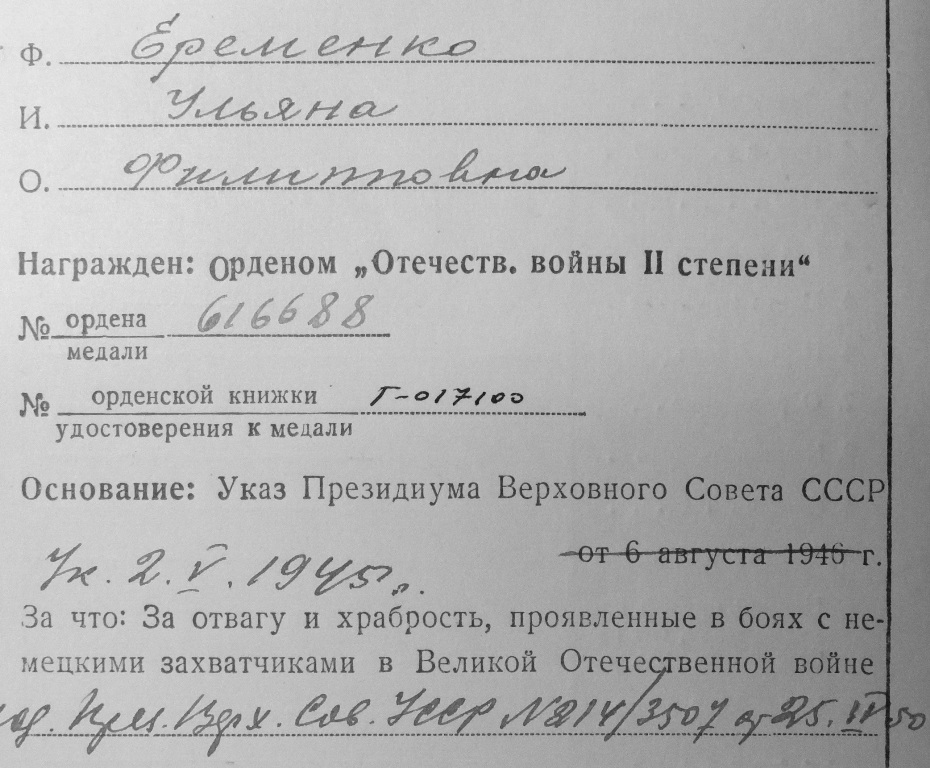 Ф. Еременко
И. Ульяна
О. Филипповна
Награжден: орденом „Отечеств. войны II степени“
№ ордена 616688
медали
№ орденской книжки Г-017100
удостоверения к медали
Основание: Указ Президиума Верховного Совета СССР
от 6 августа 1946 г.
Ук. 2.V.1945г.
За что: За отвагу и храбрость, проявленные в боях с не-
мецкими захватчиками в Великой Отечественной войне
През. Верх. Сов. УССР №214/3507 от 25. 50